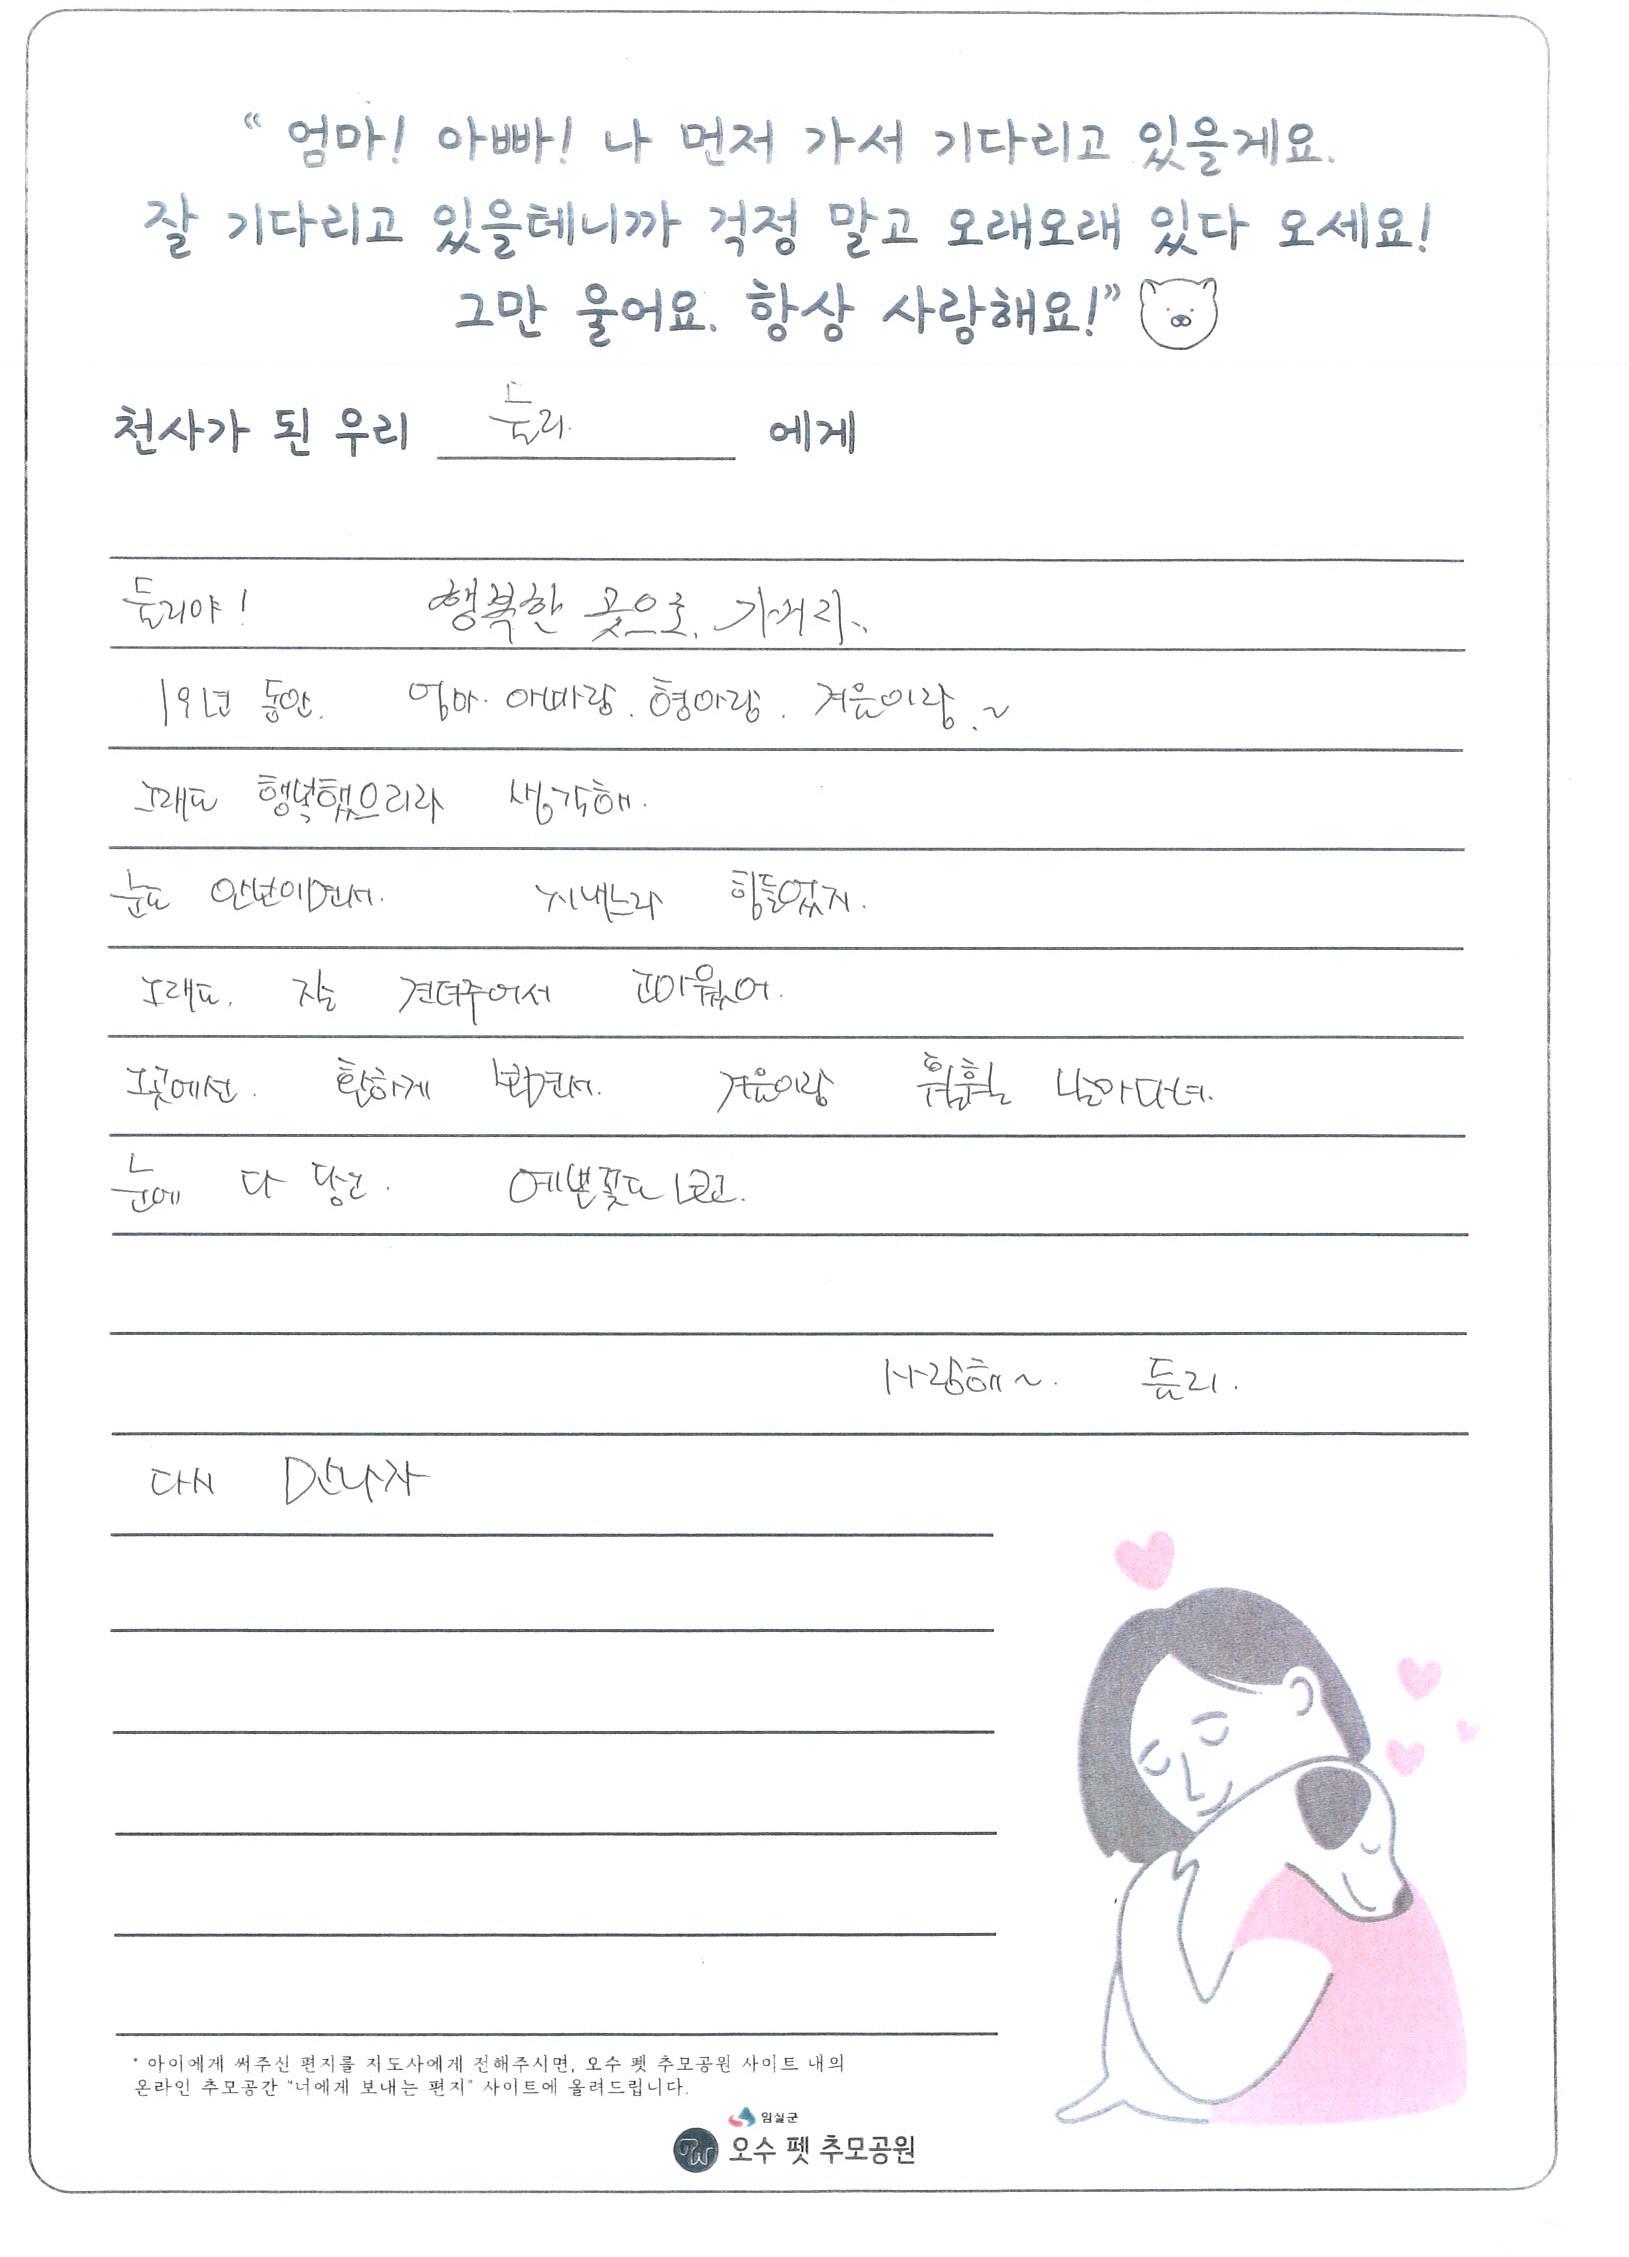 “ 엄마! 아빠! 나 먼저 가서 기다리고 있을게요.
잘 기다리고 있을테니까 걱정 말고 오래오래 있다 오세요!
그만 울어요. 항상 사랑해요!”
천사가 된 우리 에게
행복한 곳으로.
19년 동안. 엄마. 아빠랑. 형아랑.
그래도 행복했으리라 생각해.
눈도 안보이면서. 지내느라 힘들었지.
그래도. 잘 견뎌주어서 고마웠어.
그곳에선. 환하게 보면서. 훨훨 날아다녀.
눈에 다 담고. 예쁜꽃도 보고.
사랑해~.
다시 만나자
* 아이에게 써주신 편지를 지도사에게 전해주시면, 오수 펫 추모공원 사이트 내의
온라인 추모공간 “너에게 보내는 편지” 사이트에 올려드립니다.
임실군
오수 펫 추모공원